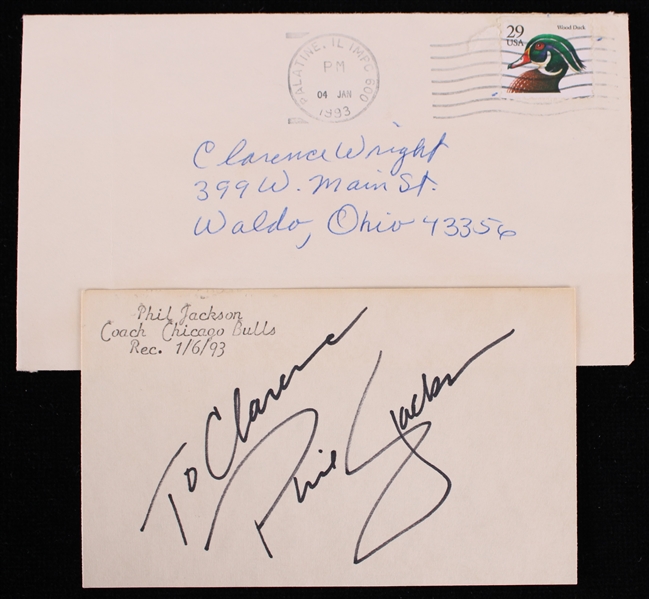 PALATINE, IL IMPC 600
PM
04 JAN
1993
29
USA
Wood Duck
Clarence Wright
399 W. Main St.
Waldo, Ohio 43356
Phil Jackson
Coach Chicago Bulls
Rec. 1/6/93
To Clarence
Phil Jackson